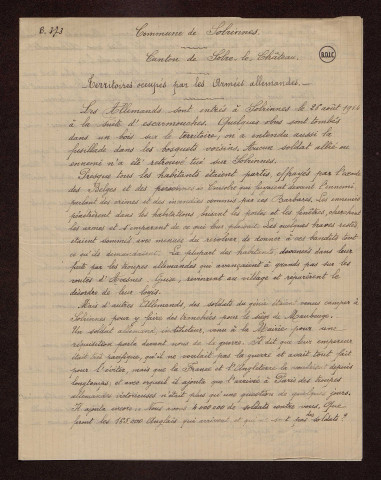 B. 373
Commune de Solrinnes.
Canton de Solre-le-Château.
BDIC
Territoires occupés par les Armées allemandes.
Les Allemands sont entrés à Solrinnes le 28 août 1914
à la suite d'escarmouches. Quelques obus sont tombés
dans un bois sur le territoire, on a entendu aussi la
fusillade dans les bosquets voisins. Aucun soldat allié ou
ennemi n'a été retrouvé tué sur Solrinnes.
Presque tous les habitants étaient partis, effrayés par l'exode
des Belges et des personnes qui fuyaient devant l'ennemi,
parlant des crimes et des incendies commis par ces Barbares. Les ennemis
pénétrèrent dans les habitations brisant les portes et les fenêtres, cherchant
les armes et s'emparèrent de ce qui leur plaisait. Les quelques braves restés
étaient sommés avec menaces du revolver de donner à ces bandits tout
ce qu'ils demandaient. La plupart des habitants devancés dans leur
fuite par les troupes allemandes qui avançaient à grands pas sur les
routes d'Avesnes, revinrent au village et réparèrent le
désordre de leur logis.
Mais d'autres Allemands, des soldats du génie étaient venus camper à
Solrinnes pour y faire des tranchées pour le siège de Maubeuge.
Un soldat allemand, instituteur, vint à la Mairie pour une
réquisition parla devant nous de la guerre. Il dit que leur empereur
était très pacifique, qu'il ne voulait pas la guerre et avait tout
fait pour l'éviter, mais que la France et l'Angleterre la voulaient depuis
longtemps, et avec orgueil il ajouta que l'arrivée à Paris des troupes
allemandes victorieuses n'était plus qu'une question de quelques jours.
Il ajouta encore : Nous avons 4 000 000 de soldats contre vous. Que
feront les 150.000 Anglais qui arrivent et qui ne sont pas soldats ?